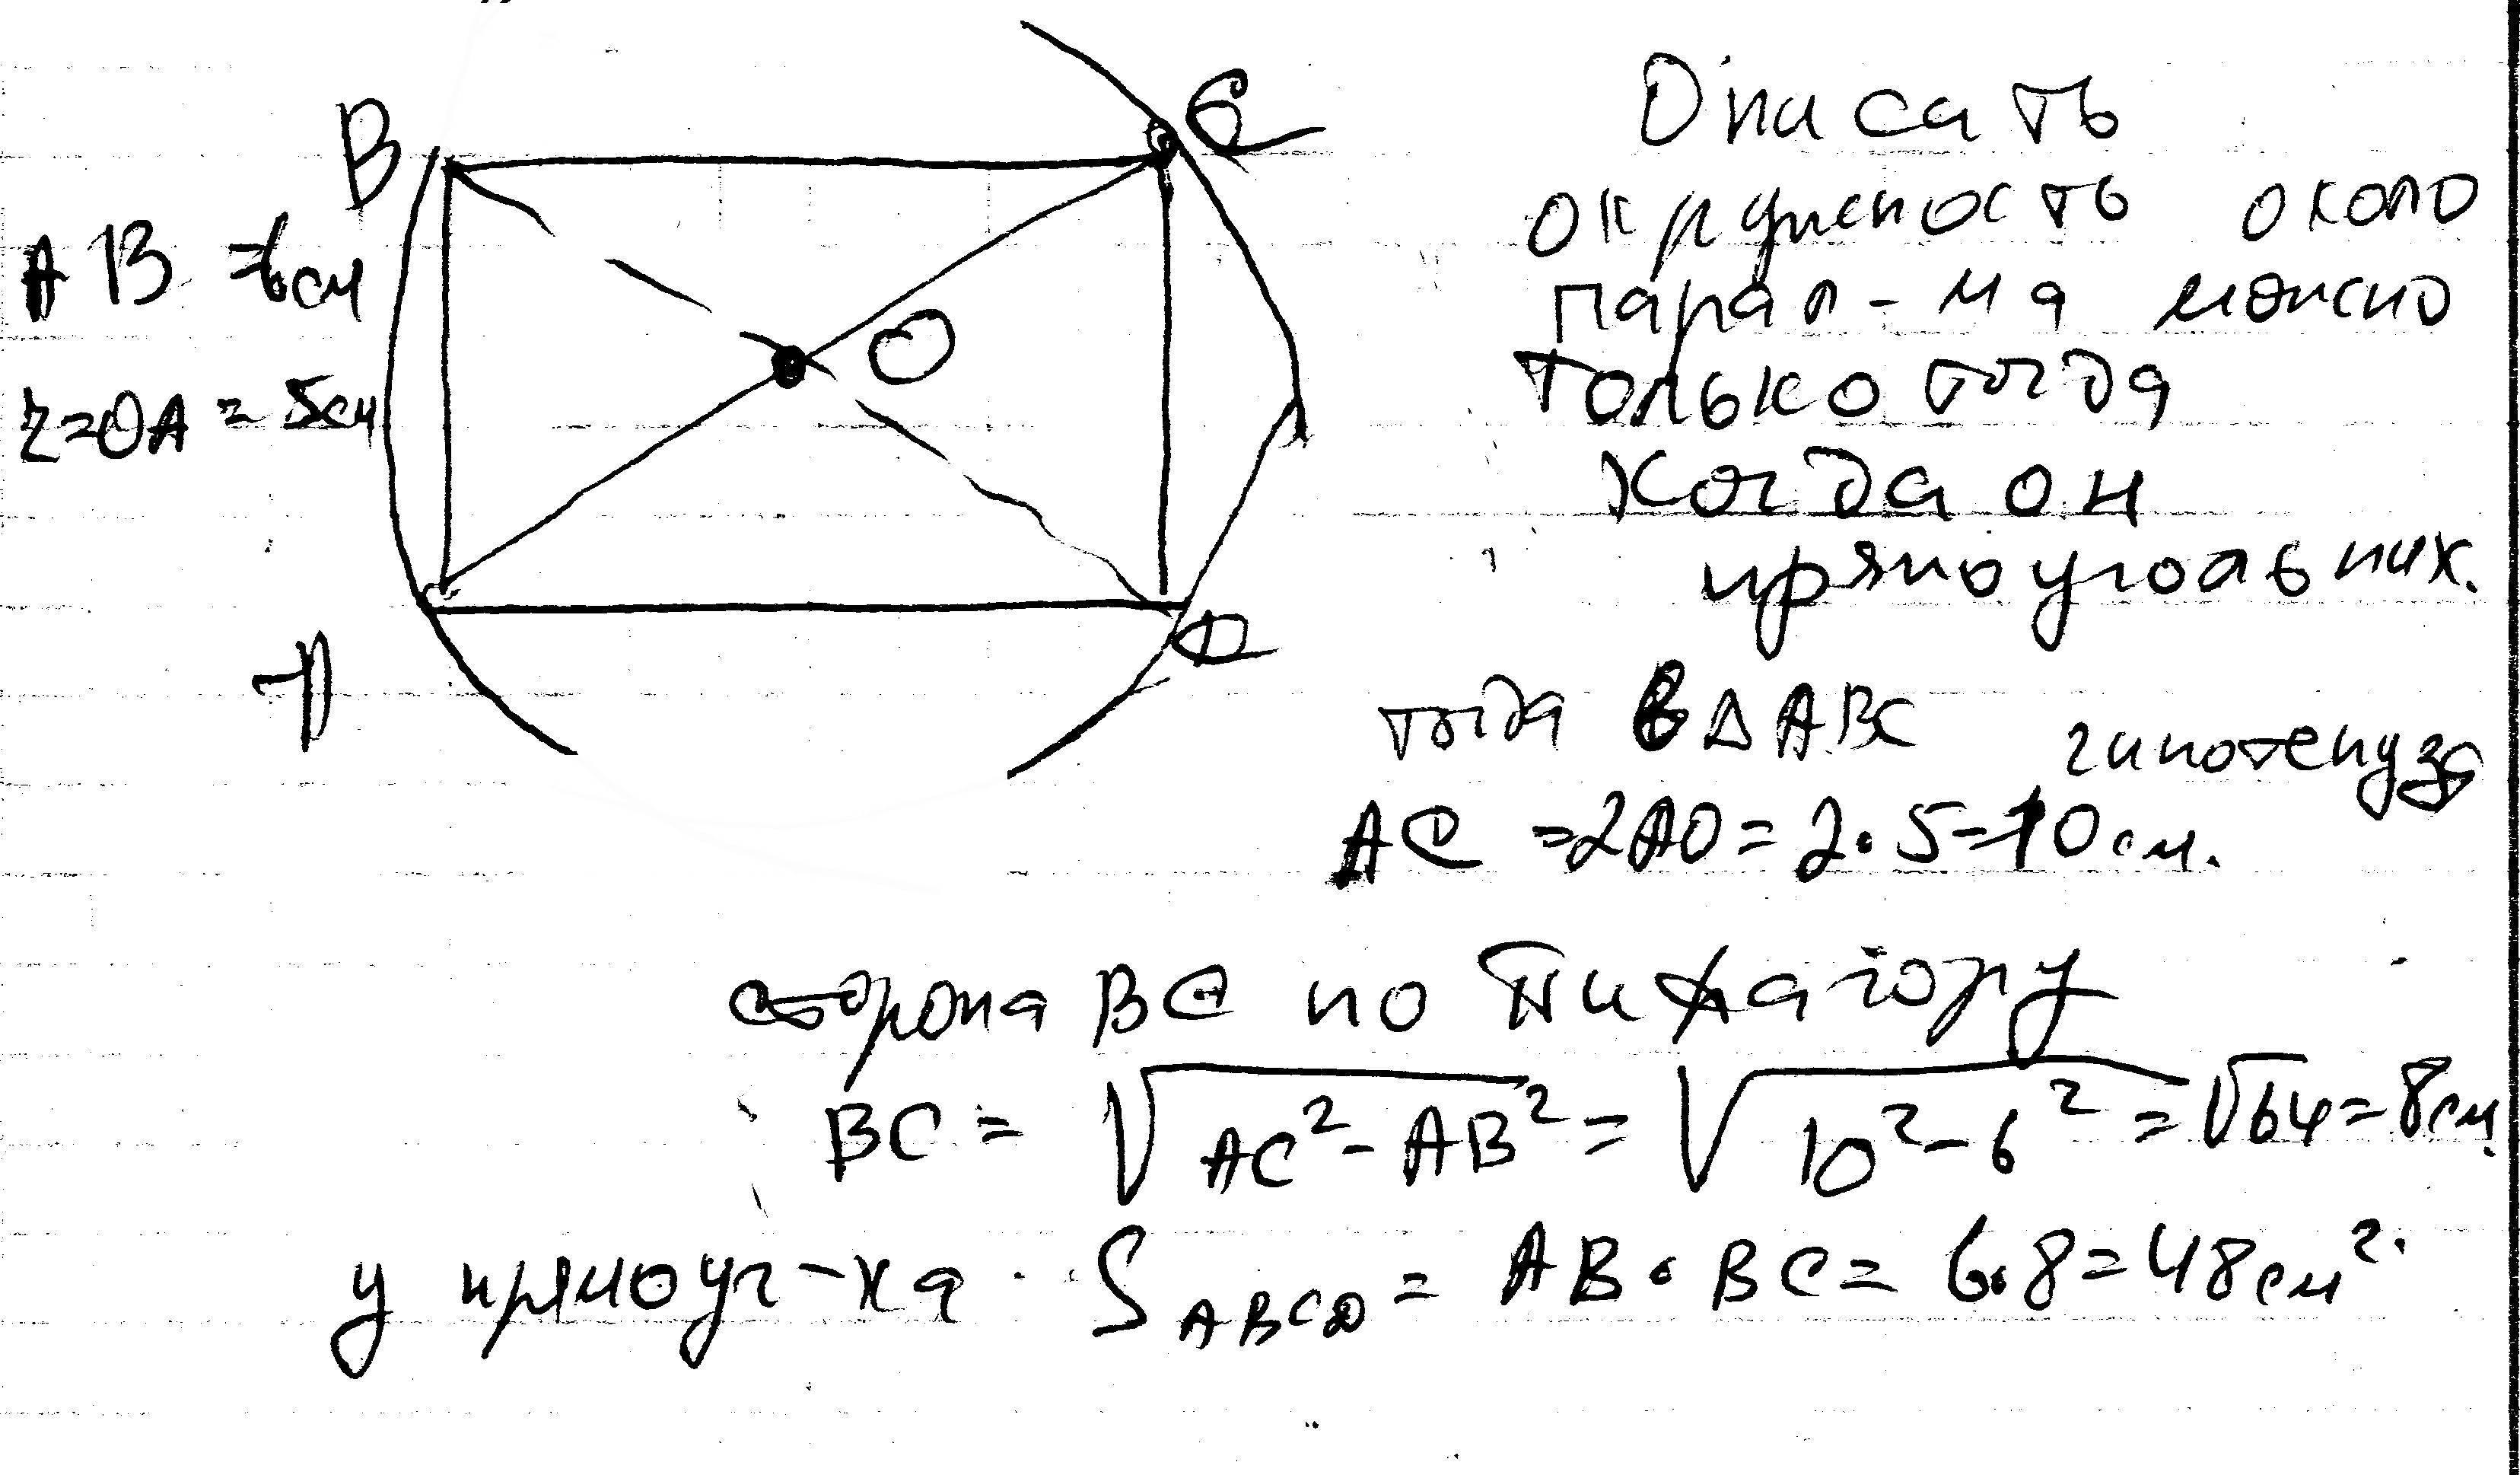 B
C
AB = 6см
O
r=OA = 5см
A
D
Описать
окружность около
парал-ма можно
только тогда
когда он
прямоугольник.
тогда в ΔABC гипотенуза
AC = 2AO = 2·5=10см.
сторона BC по Пифагору
BC = √AC²-AB² = √10²-6² = √64 = 8см.
у прямоуг-ка S ABCD = AB · BC = 6·8=48см².